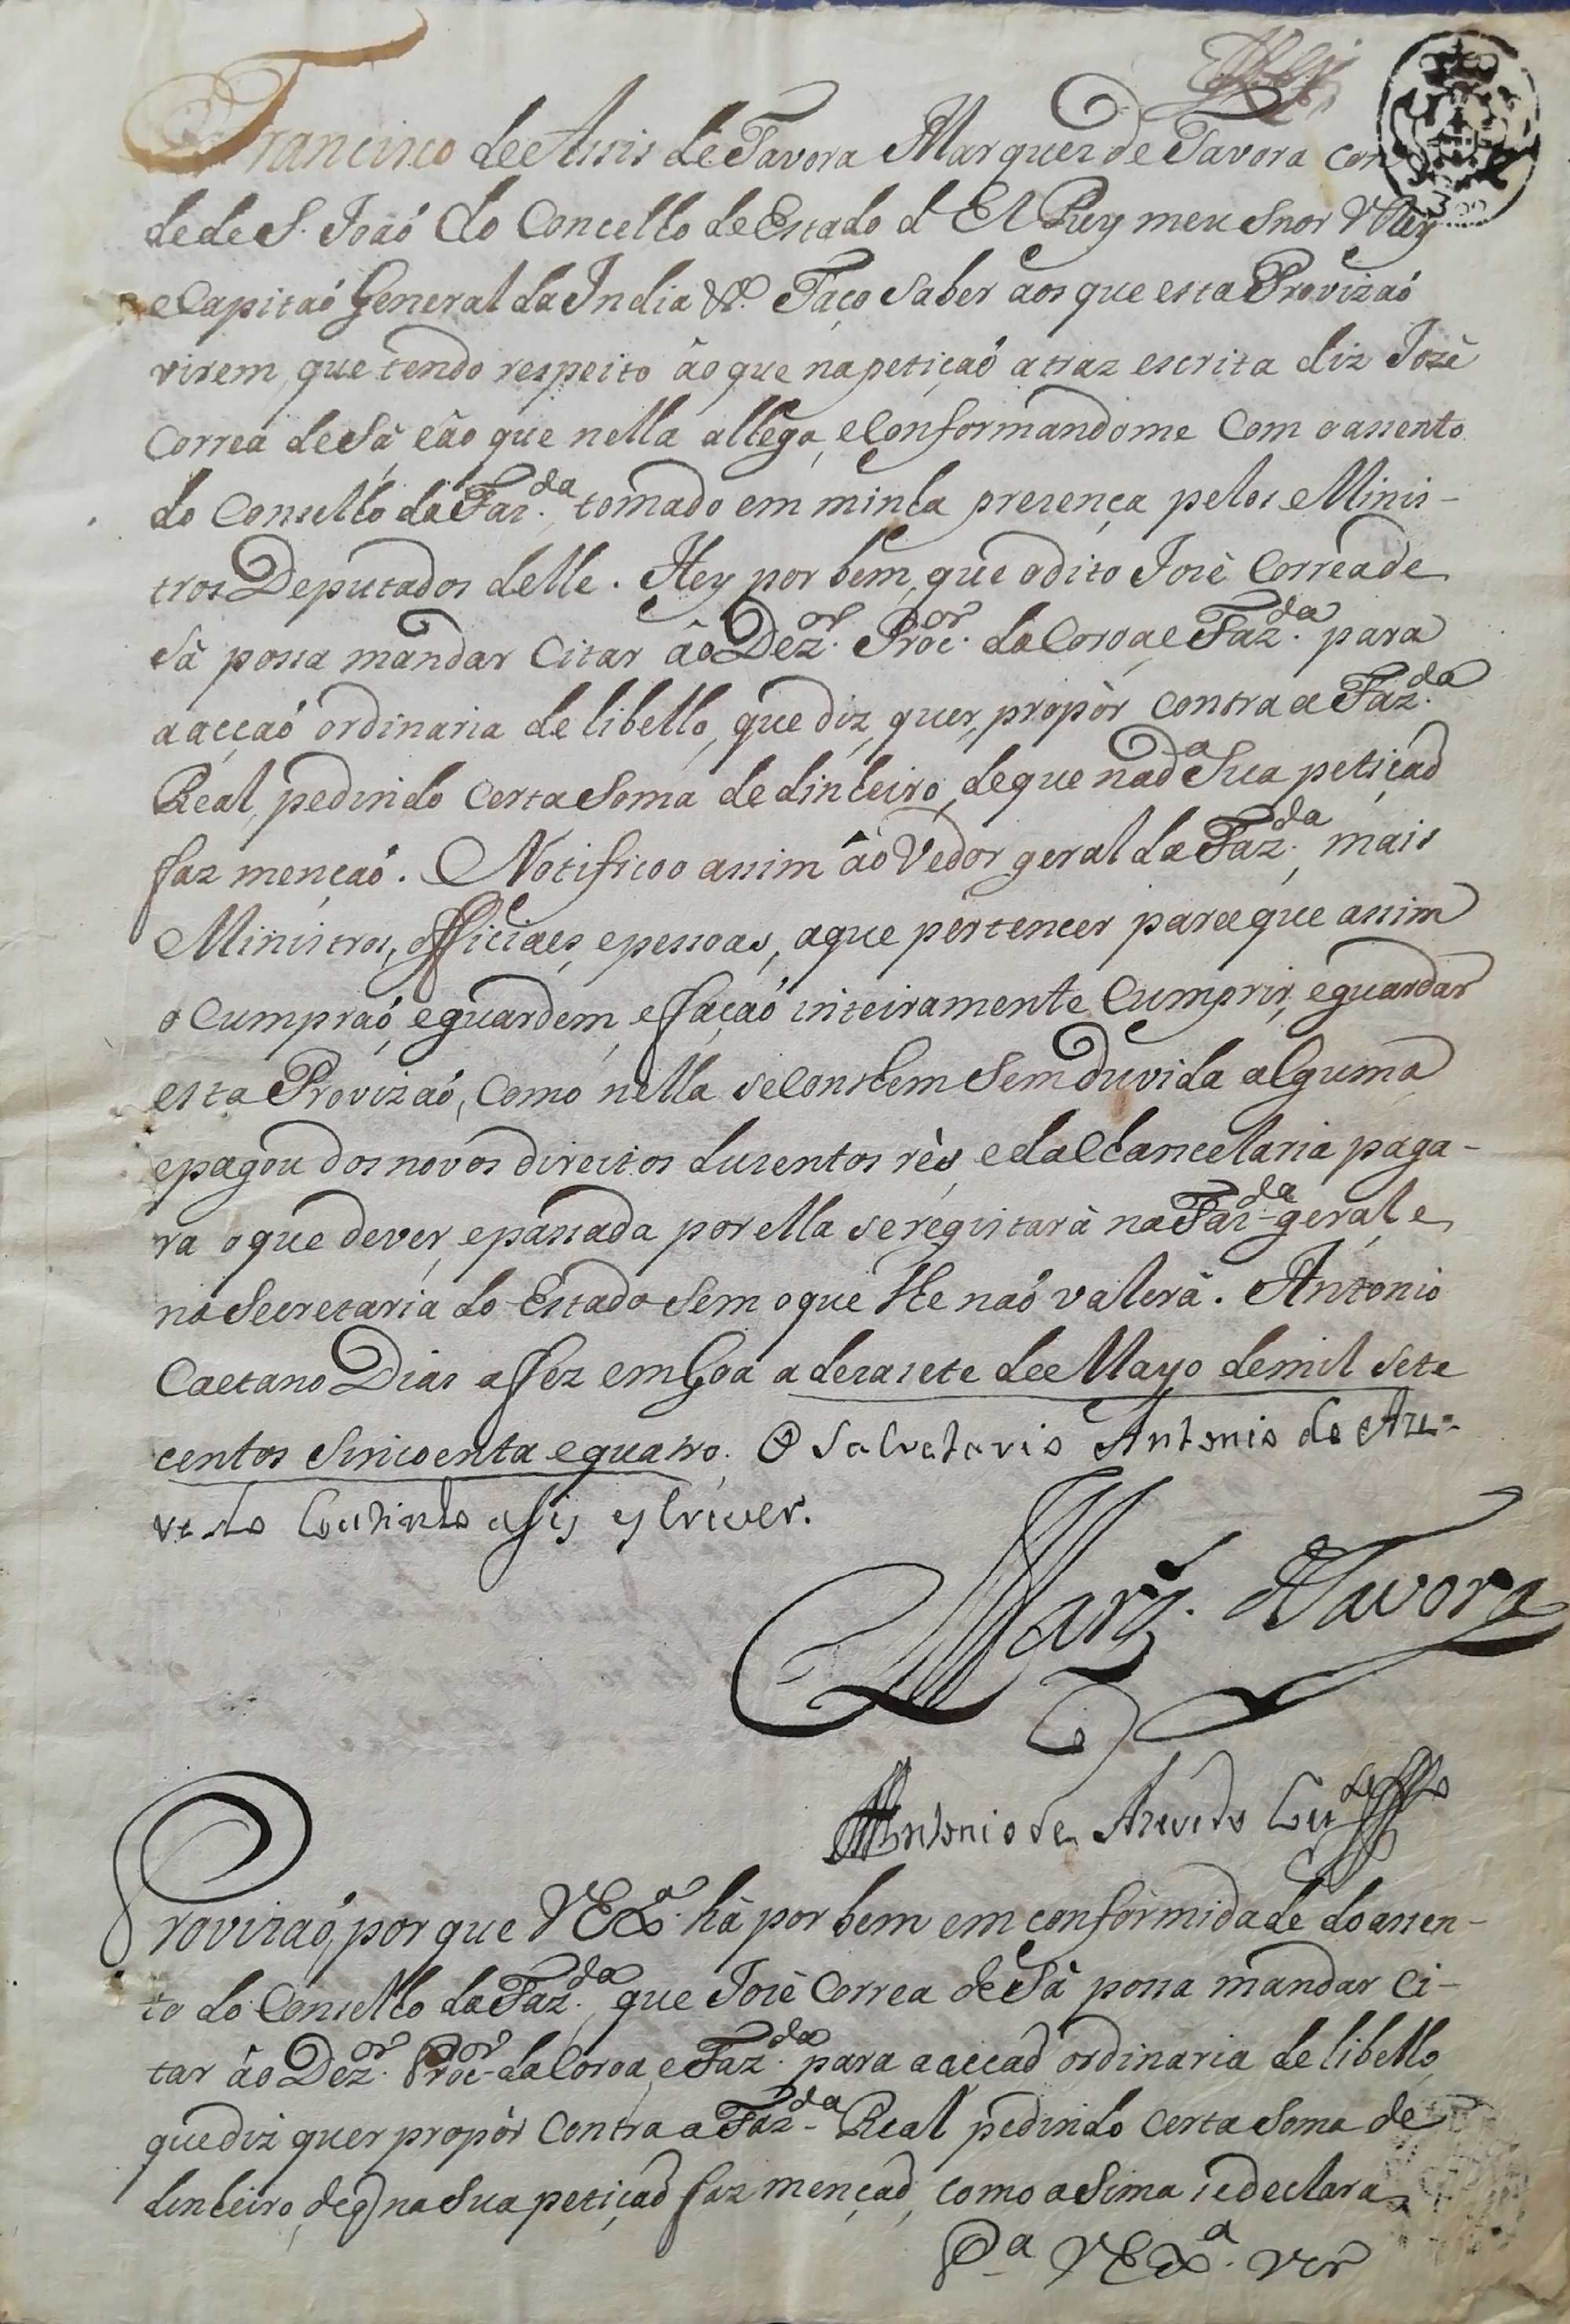 Francisco de Assis de Tavora Marquez de Tavora Con
de de S. Joaõ do Concelho de Estado d El Rey meu Snor V Rey
e Capitaõ General da India &ª. Faço saber aos que esta Provizaõ
virem, que tendo respeito âo que na petiçaõ atraz escrita diz Jozè
Correa de Sâ, e âo que nella allega, e Conformandome Com o assento
do Conselho da Faz.da tomado em minha prezença pelos Minis-
tros Deputados delle. Hey por bem, que o dito Jozè Correa de
Sâ possa mandar Citar âo Dez.or Proc.or da Coroa, e Faz.da para
a acçaõ ordinaria de libello, que diz, quer, propòr contra a Faz.da
Real, pedindo certa soma de dinheiro, de que na d.a Sua petiçaõ
faz mençaõ. Notifico o assim âo Vedor geral da Faz.da, mais
Ministros, officiaes, e pessoas, a que pertencer para que assim
o Cumpraõ, e guardem, e façaõ inteiramente Cumprir, e guardar
esta Provizaõ, Como nella se Conthem Sem duvida alguma
e pagou dos novos direitos duzentos rès, e da Chancelaria paga-
ra o que dever, e passada por ella se registarâ na Faz.da geral, e
na Secretaria do Estado Sem o que lhe naõ valerâ. Antonio
Caetano Dias a fez em Goa a dezasete de Mayo de mil sete
centos Sincoenta e quatro. O Secretario Antonio de Aze-
vedo Coutinho a fis escrever.
Marq. de Tavora
Antonio de Azevedo Cout.o
Provizaõ, por que V Ex.a hâ por bem em conformidade do assen-
to do Conselho da Faz.da, que Jozè Correa de Sâ possa mandar Ci-
tar âo Dez.or Proc.or da Coroa, e Faz.da para a acçaõ ordinaria de libello,
que diz quer propòr Contra a Faz.da Real pedindo certa Soma de
dinheiro, de q na Sua petiçaõ faz mençaõ, como aSima se declara
P.a V Ex.a ver